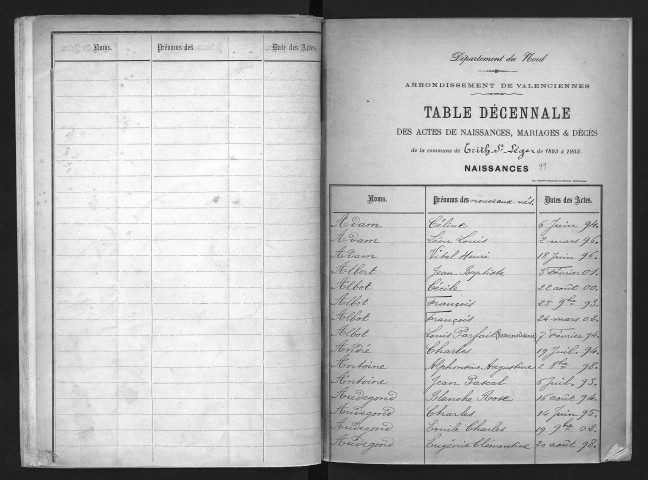 Noms. Prénoms des Date des Actes.
Département du Nord
ARRONDISSEMENT DE VALENCIENNES
TABLE DÉCENNALE
DES ACTES DE NAISSANCES, MARIAGES & DÉCÈS
de la commune de Trith-St-Léger de 1893 à 1902.
NAISSANCES
Noms. Prénoms des nouveaux-nés. Dates des Actes.
Adam Céline 6 Juin 94.
Adam Léon Louis 2 mars 96.
Adam Vital Henri 18 Juin 96.
Albert Jean Baptiste 5 Février 01.
Albot Cécile 22 août 00.
Albot François 23 9bre 93.
Albot François 24 mars 02.
Albot Louis Parfait 7 Février 94.
André Charles 19 Juil. 94.
Antoine Alphonsine Augustine 2 8bre 98.
Antoine Jean Pascal 5 Juil. 93.
Audegond Blanche Rose 16 août 94.
Audegond Charles 14 Juin 96.
Audegond Emile Charles 19 9bre 02.
Audegond Eugénie Clémentine 20 août 98.